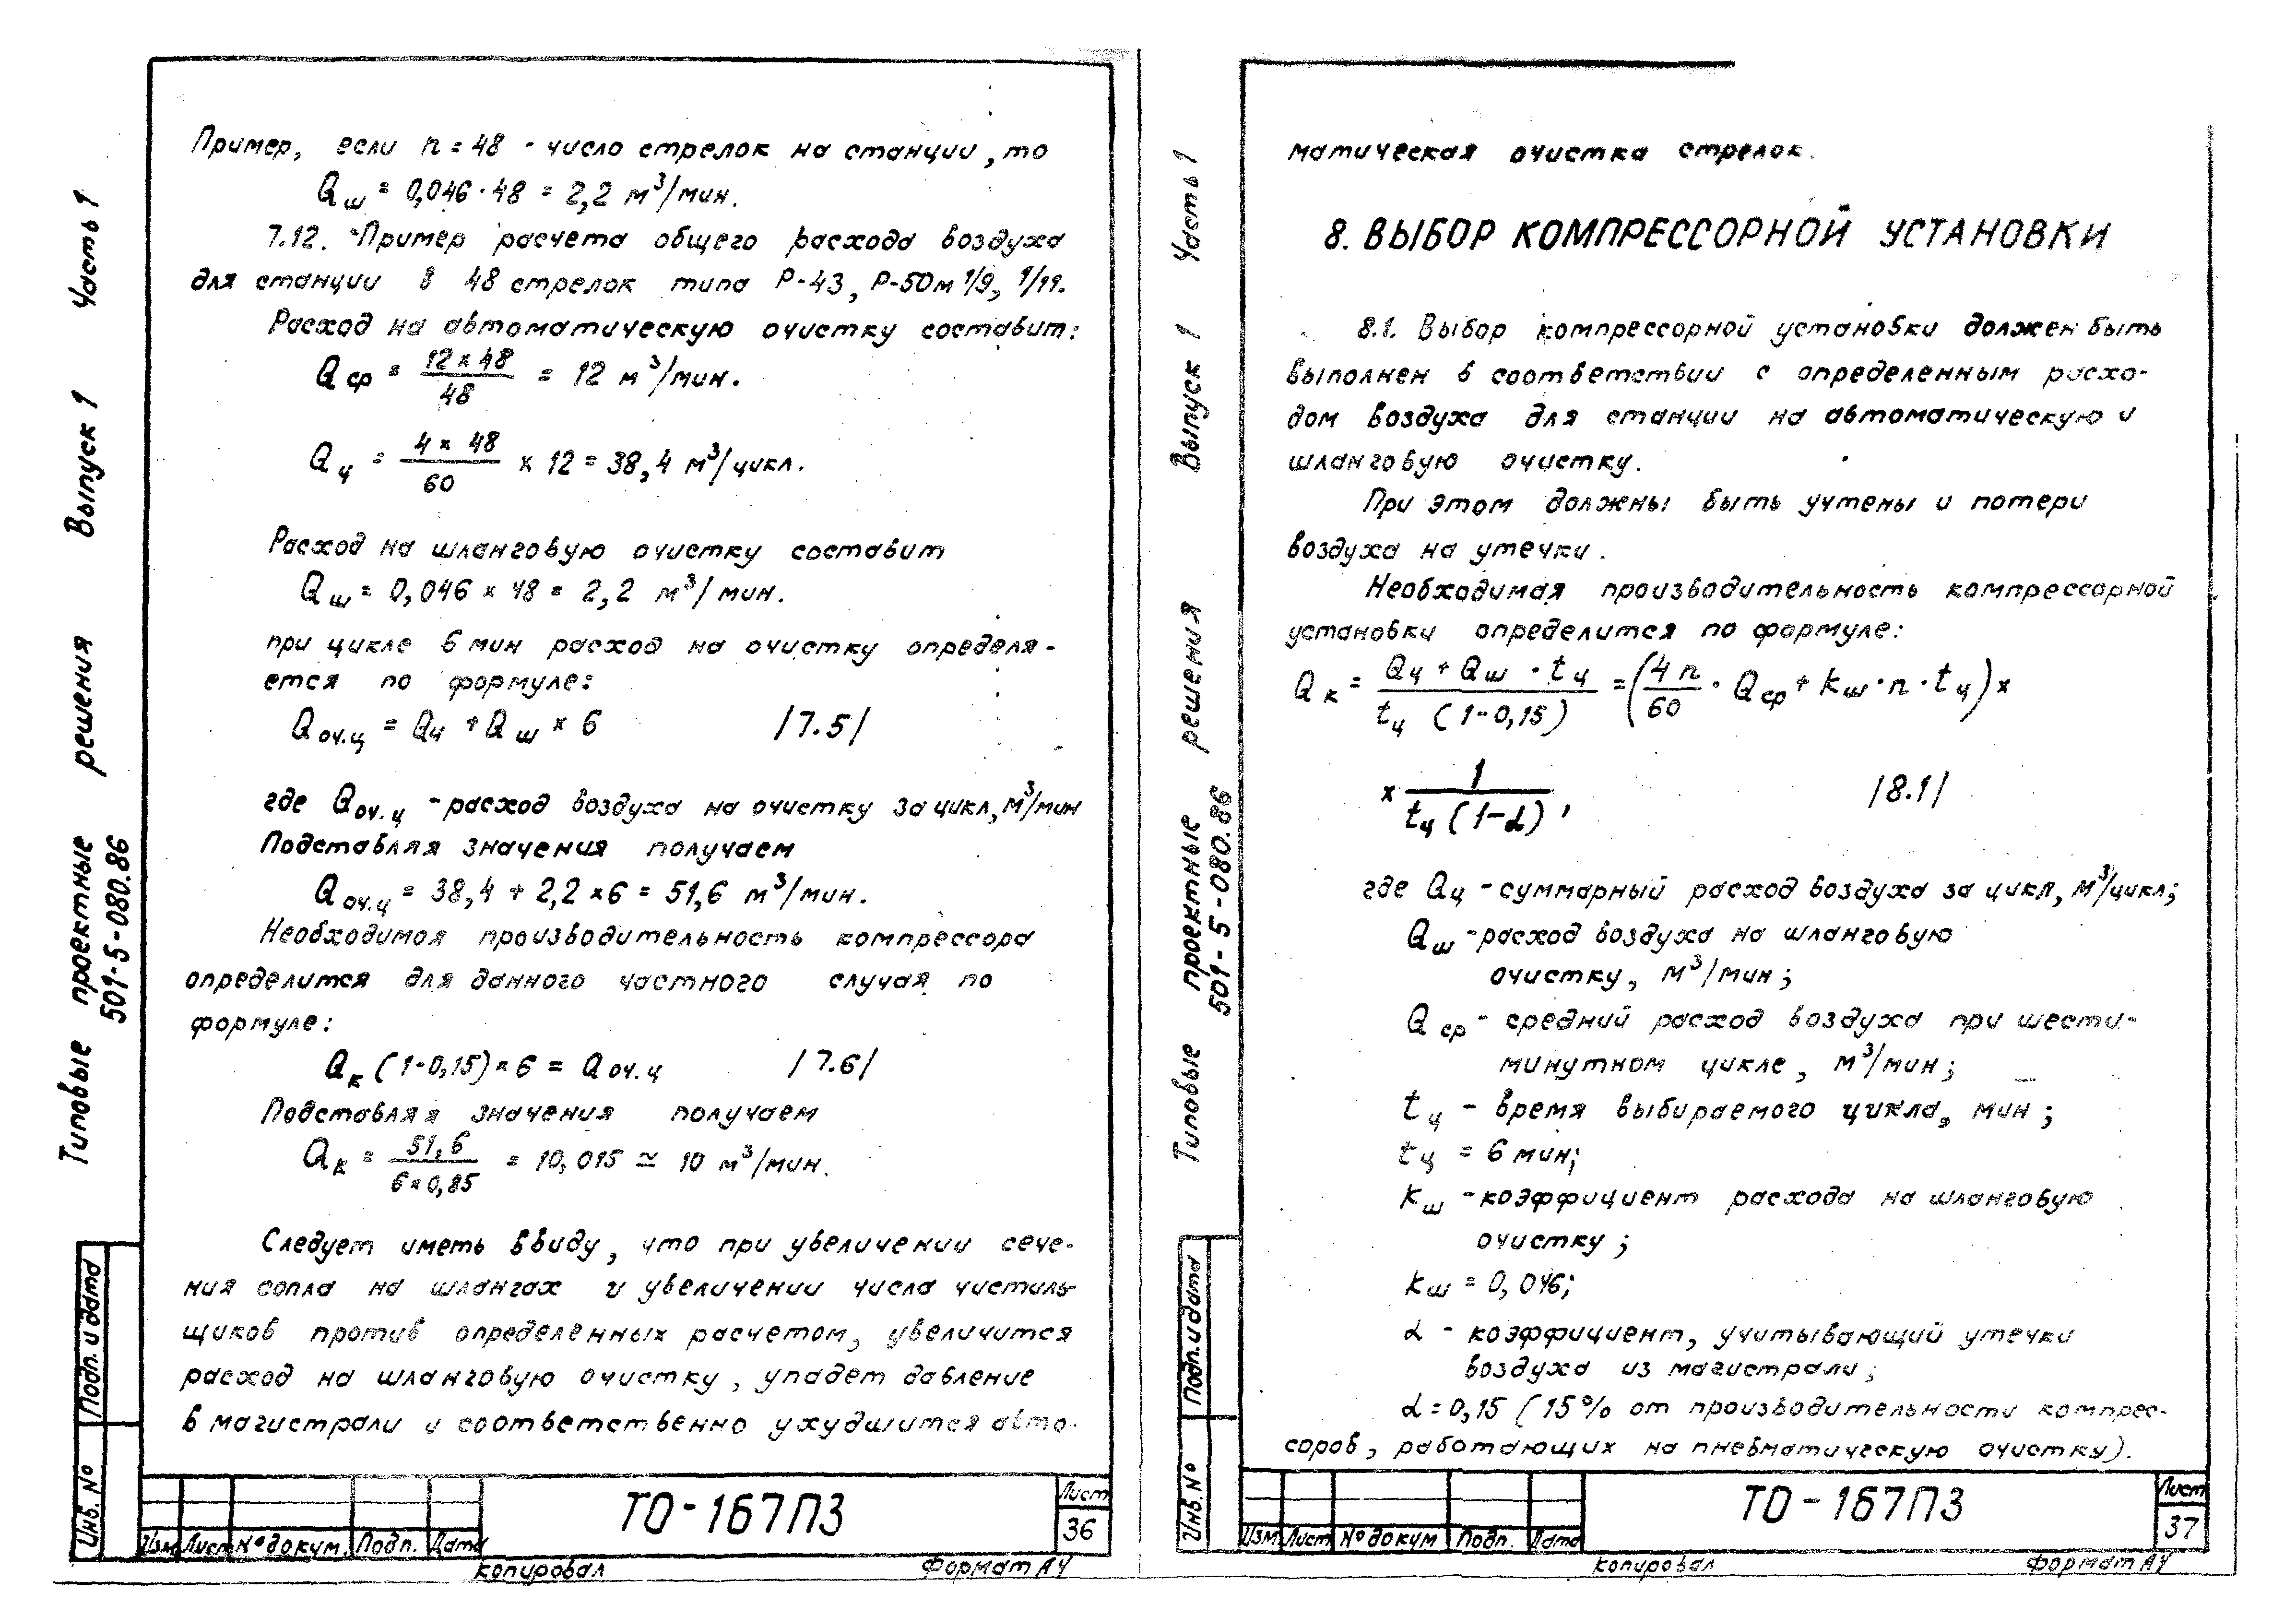 Пример, если n = 48 - число стрелок на станции, то
Qш = 0,046 · 48 = 2,2 м³/мин.
7.12. Пример расчета общего расхода воздуха
для станции в 48 стрелок типа Р-43, Р-50м 1/9, 1/11.
Расход на автоматическую очистку составит:
Qср = 12 × 48 / 48 = 12 м³/мин.
Qц = 4 × 48 / 60 × 12 = 38,4 м³/цикл.
Расход на шланговую очистку составит
Qш = 0,046 × 48 = 2,2 м³/мин.
при цикле 6 мин расход на очистку определя-
ется по формуле:
Qоч.ц = Qц + Qш × 6 /7.5/
где Qоч.ц - расход воздуха на очистку за цикл, м³/мин
Подставляя значения получаем
Qоч.ц = 38,4 + 2,2 × 6 = 51,6 м³/мин.
Необходимая производительность компрессора
определится для данного частного случая по
формуле:
Qк (1-0,15) × 6 = Qоч.ц /7.6/
Подставляя значения получаем
Qк = 51,6 / 6 × 0,85 = 10,015 ≃ 10 м³/мин.
Следует иметь ввиду, что при увеличении сече-
ния сопла на шлангах и увеличении числа чистиль-
щиков против определенных расчетом, увеличится
расход на шланговую очистку, упадет давление
в магистрали и соответственно ухудшится авто-
Типовые проектные решения Выпуск 1 Часть 1
501-5-080.86
Подп. и дата
Инв. №
Изм Лист № докум. Подп. Дата
ТО-167ПЗ
Лист
36
копировал
формат А4
матическая очистка стрелок.
8. ВЫБОР КОМПРЕССОРНОЙ УСТАНОВКИ
8.1. Выбор компрессорной установки должен быть
выполнен в соответствии с определенным расхо-
дом воздуха для станции на автоматическую и
шланговую очистку.
При этом должны быть учтены и потери
воздуха на утечки.
Необходимая производительность компрессорной
установки определится по формуле:
Qк = Qц + Qш · tц / tц (1-0,15) = (4n / 60 · Qср + kш · n · tц) ×
× 1 / tц (1-α), /8.1/
где Qц - суммарный расход воздуха за цикл, м³/цикл;
Qш - расход воздуха на шланговую
очистку, м³/мин;
Qср - средний расход воздуха при шести-
минутном цикле, м³/мин;
tц - время выбираемого цикла, мин;
tц = 6 мин;
kш - коэффициент расхода на шланговую
очистку;
kш = 0,046;
α - коэффициент, учитывающий утечки
воздуха из магистрали;
α = 0,15 (15% от производительности компрес-
соров, работающих на пневматическую очистку).
Типовые проектные решения Выпуск 1 Часть 1
501-5-080.86
Подп. и дата
Инв. №
Изм Лист № докум Подп. Дата
ТО-167ПЗ
Лист
37
копировал
формат А4